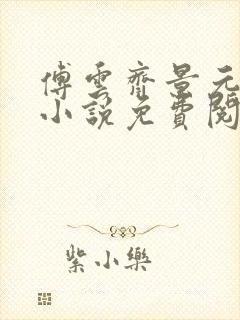 傅雲齊景元
小說免費閱
紫小樂